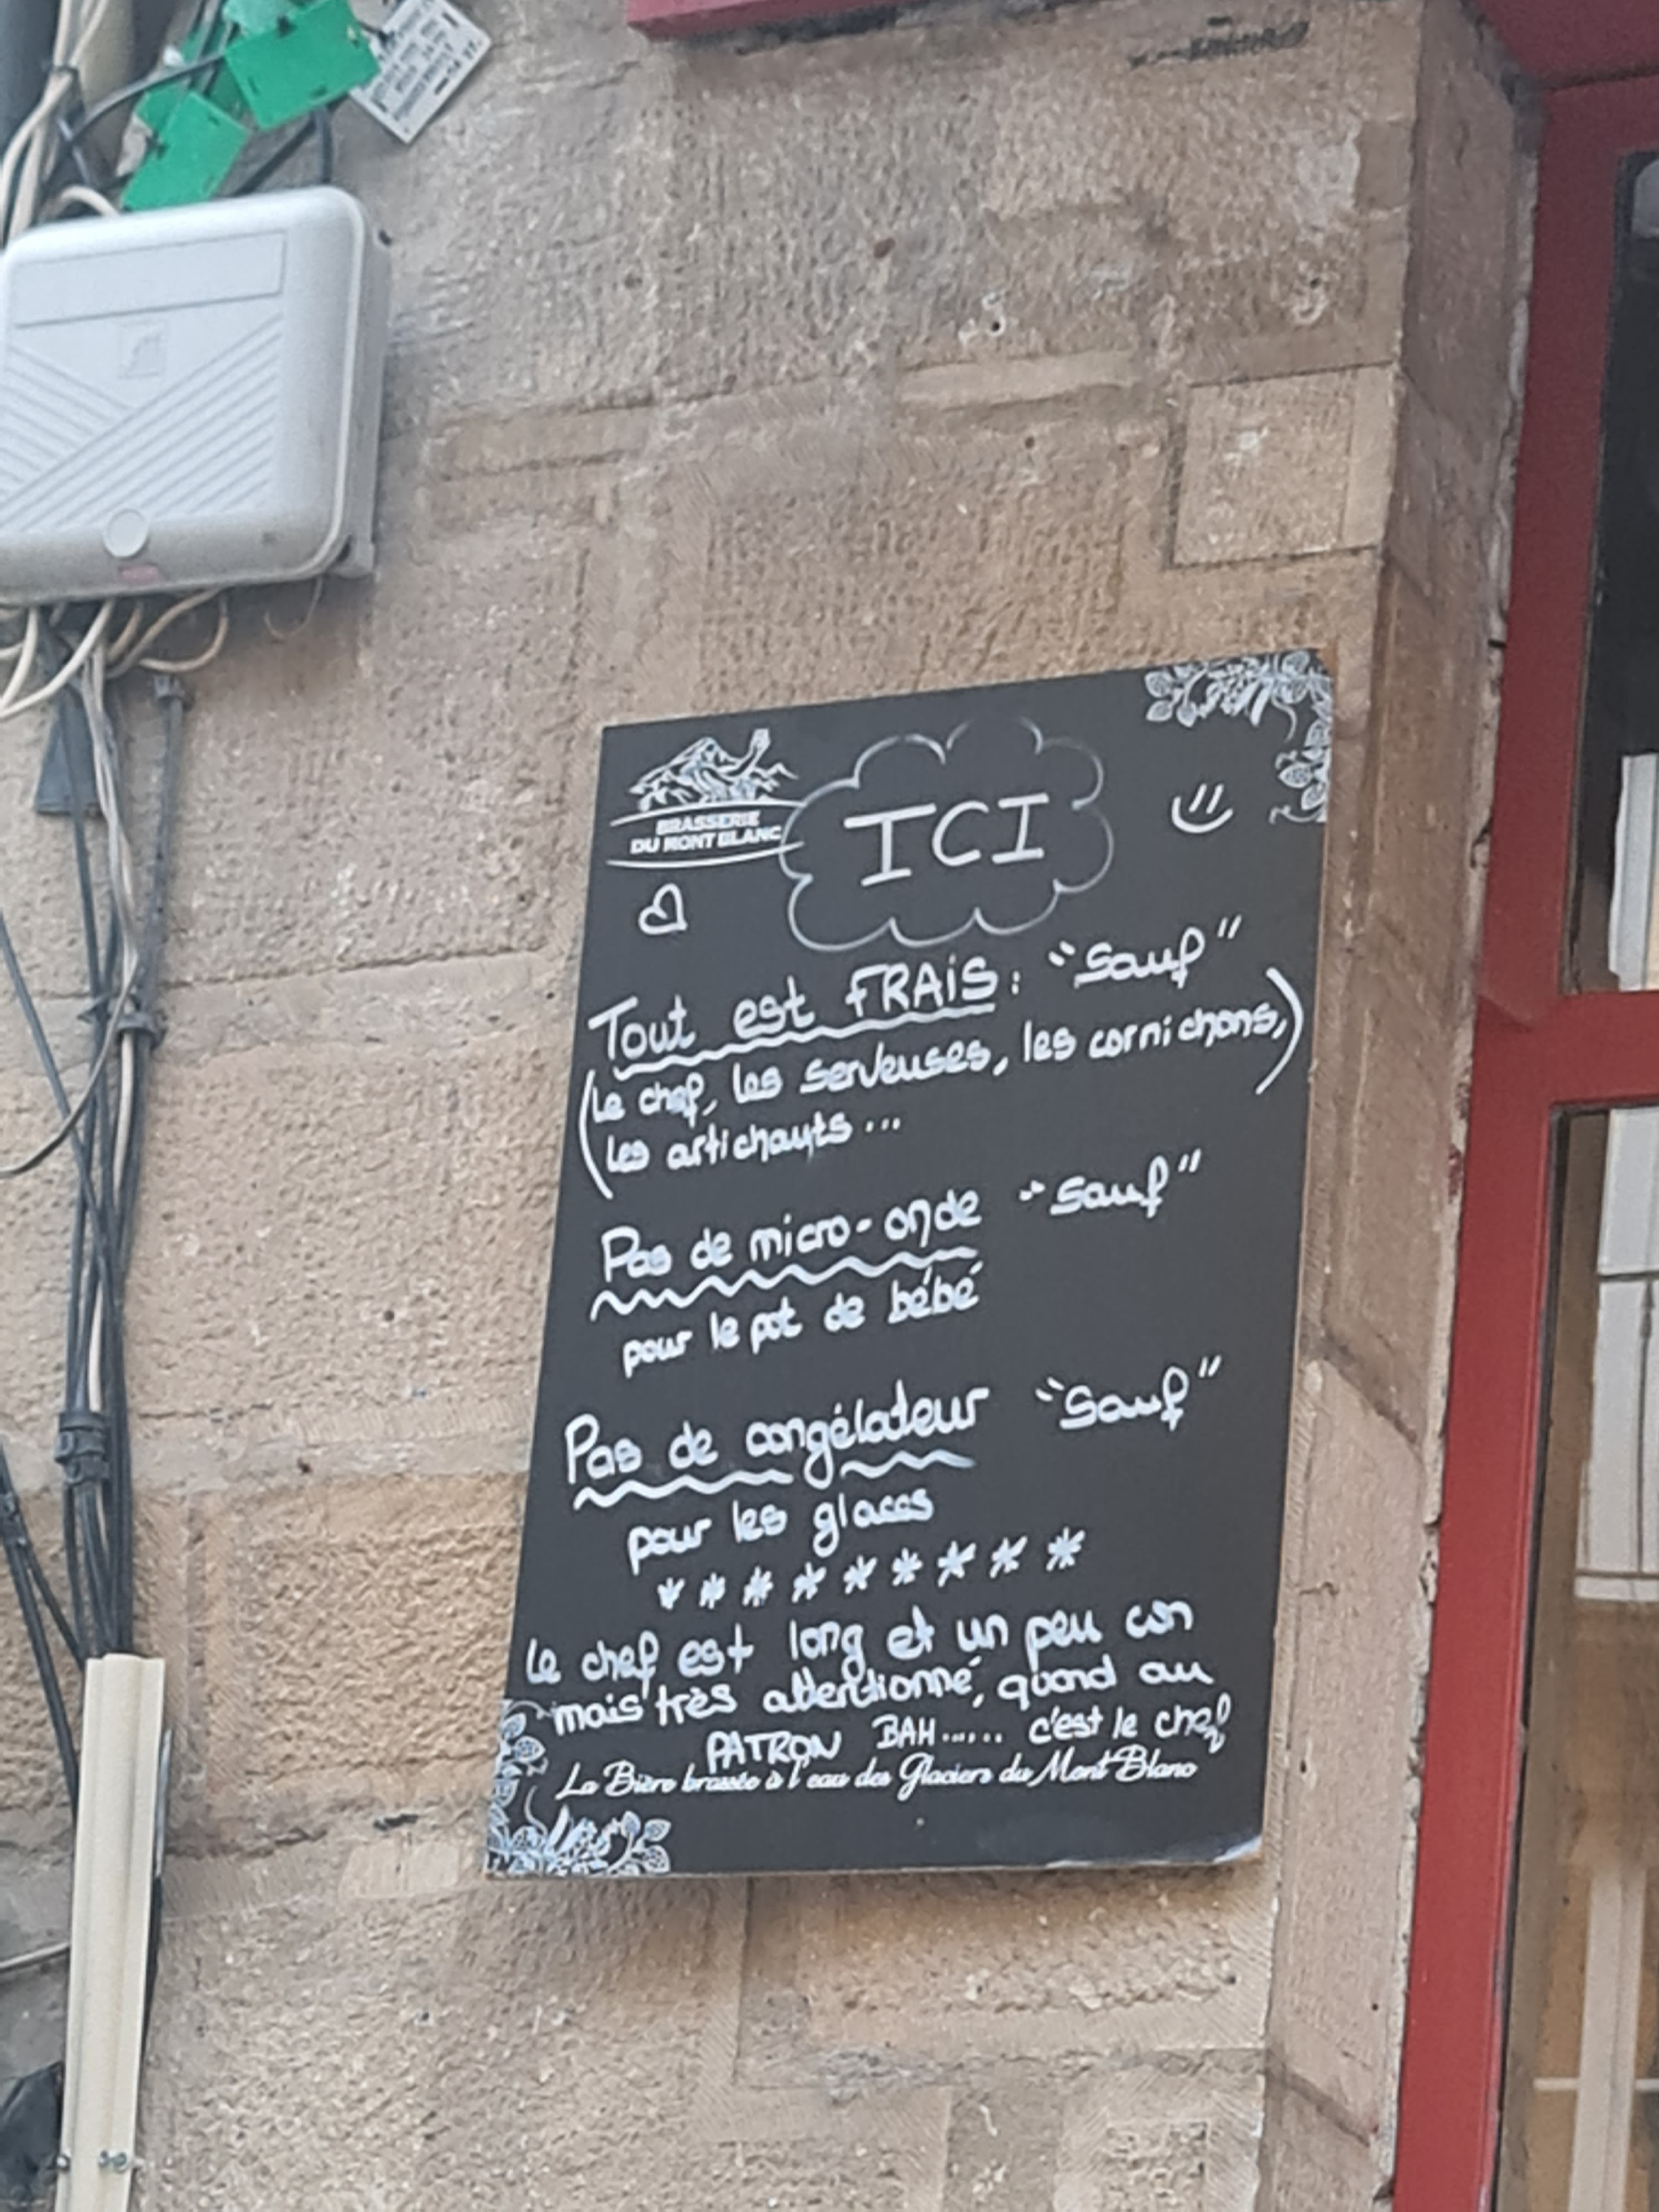 BRASSERIE
DU MONT BLANC
ICI
Tout est FRAIS : "Sauf"
(Le chef, les serveuses, les cornichons,)
les artichauts ...
Pas de micro-onde "Sauf"
pour le pot de bébé
Pas de congélateur "Sauf"
pour les glaces
* * * * * * * * *
Le chef est long et un peu con
mais très attentionné, quand au
PATRON BAH...... c'est le chef
La Bière brassée à l'eau des Glaciers du Mont Blanc